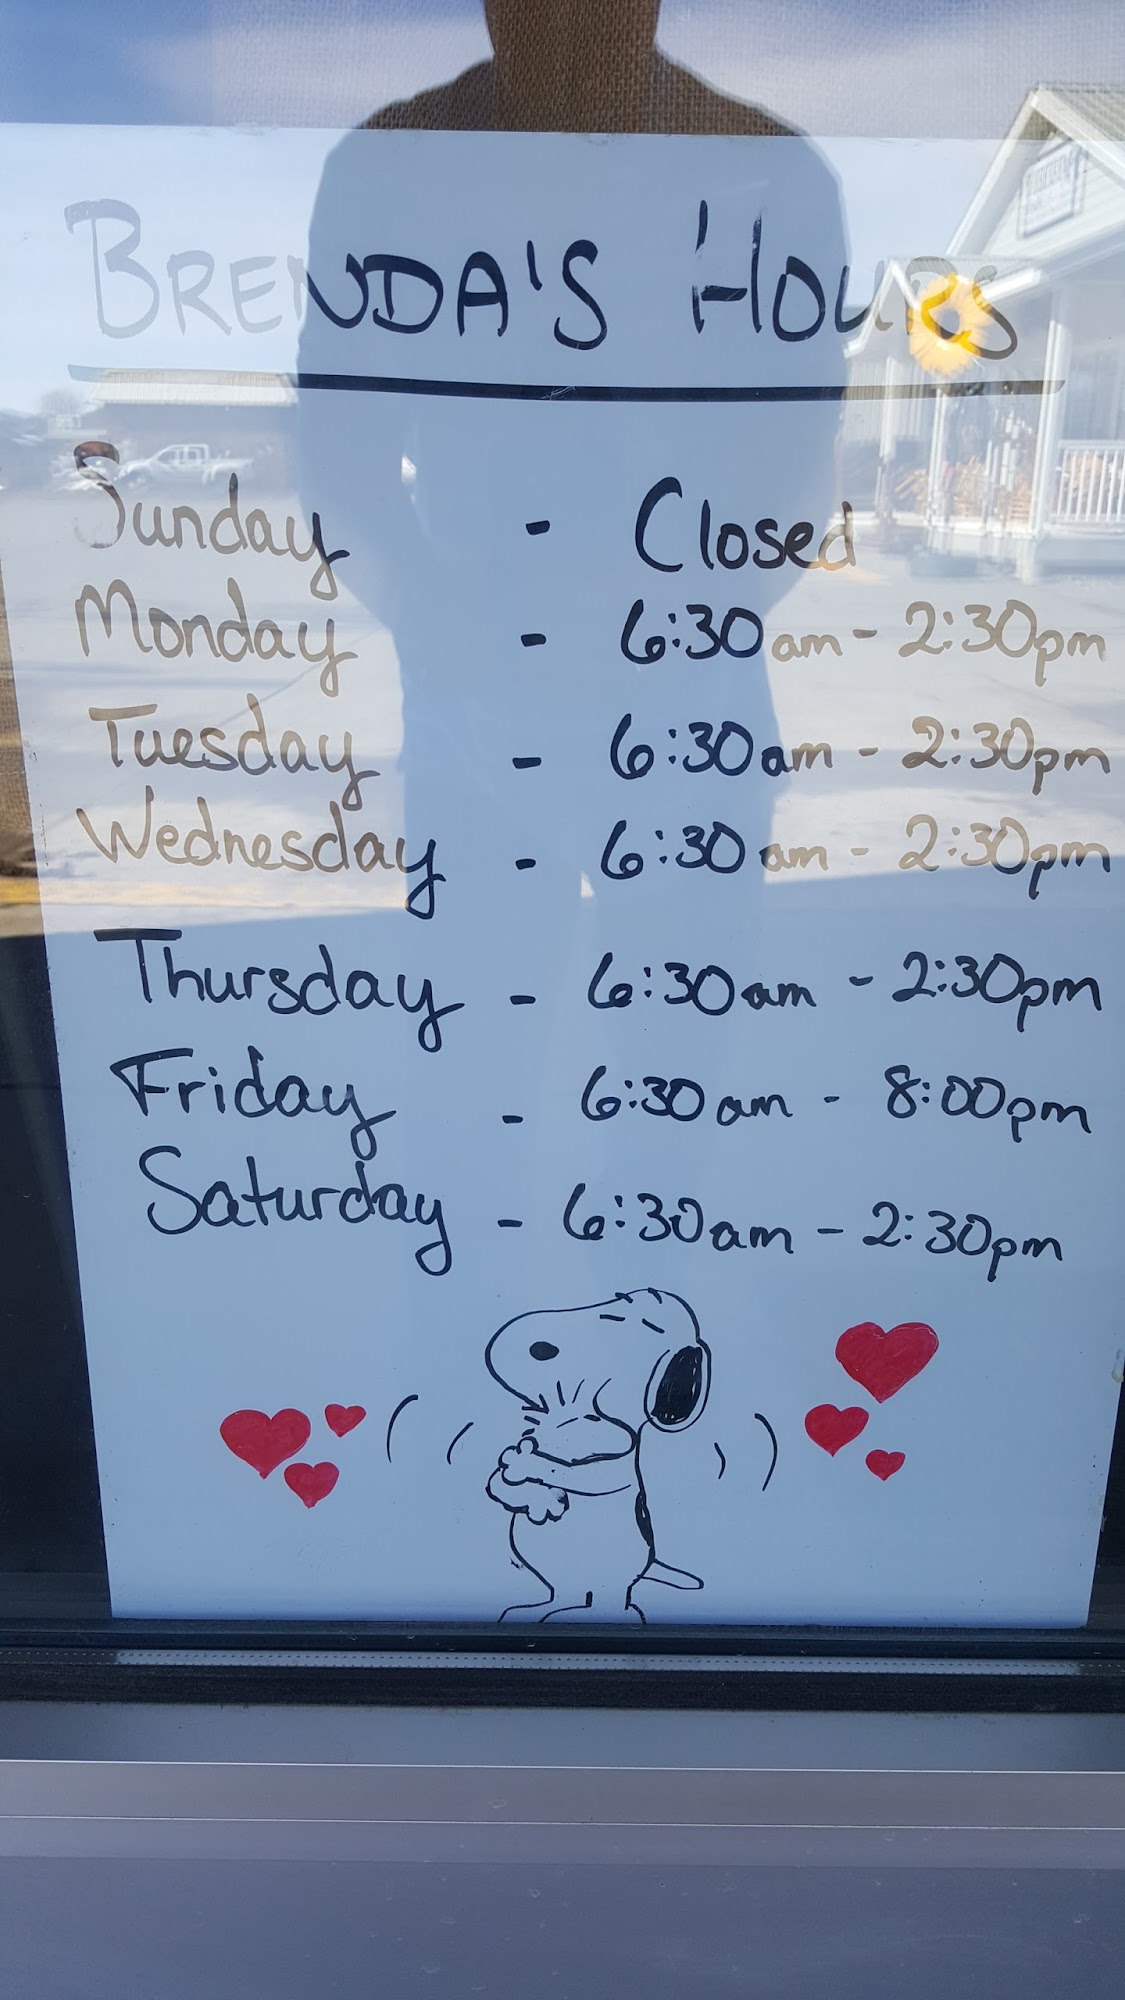 BRENDA'S HOURS
Sunday - Closed
Monday - 6:30am - 2:30pm
Tuesday - 6:30am - 2:30pm
Wednesday - 6:30am - 2:30pm
Thursday - 6:30am - 2:30pm
Friday - 6:30am - 8:00pm
Saturday - 6:30am - 2:30pm